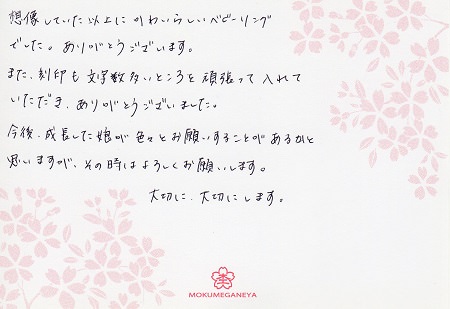 想像していた以上にかわいらしいベビーリング
でした。ありがとうございます。
また、刻印も文字数多いところを頑張って入れて
いただき、ありがとうございました。
今後、成長した娘が色々とお願いすることがあるかと
思いますが、その時はよろしくお願いします。
大切に、大切にします。
MOKUMEGANEYA